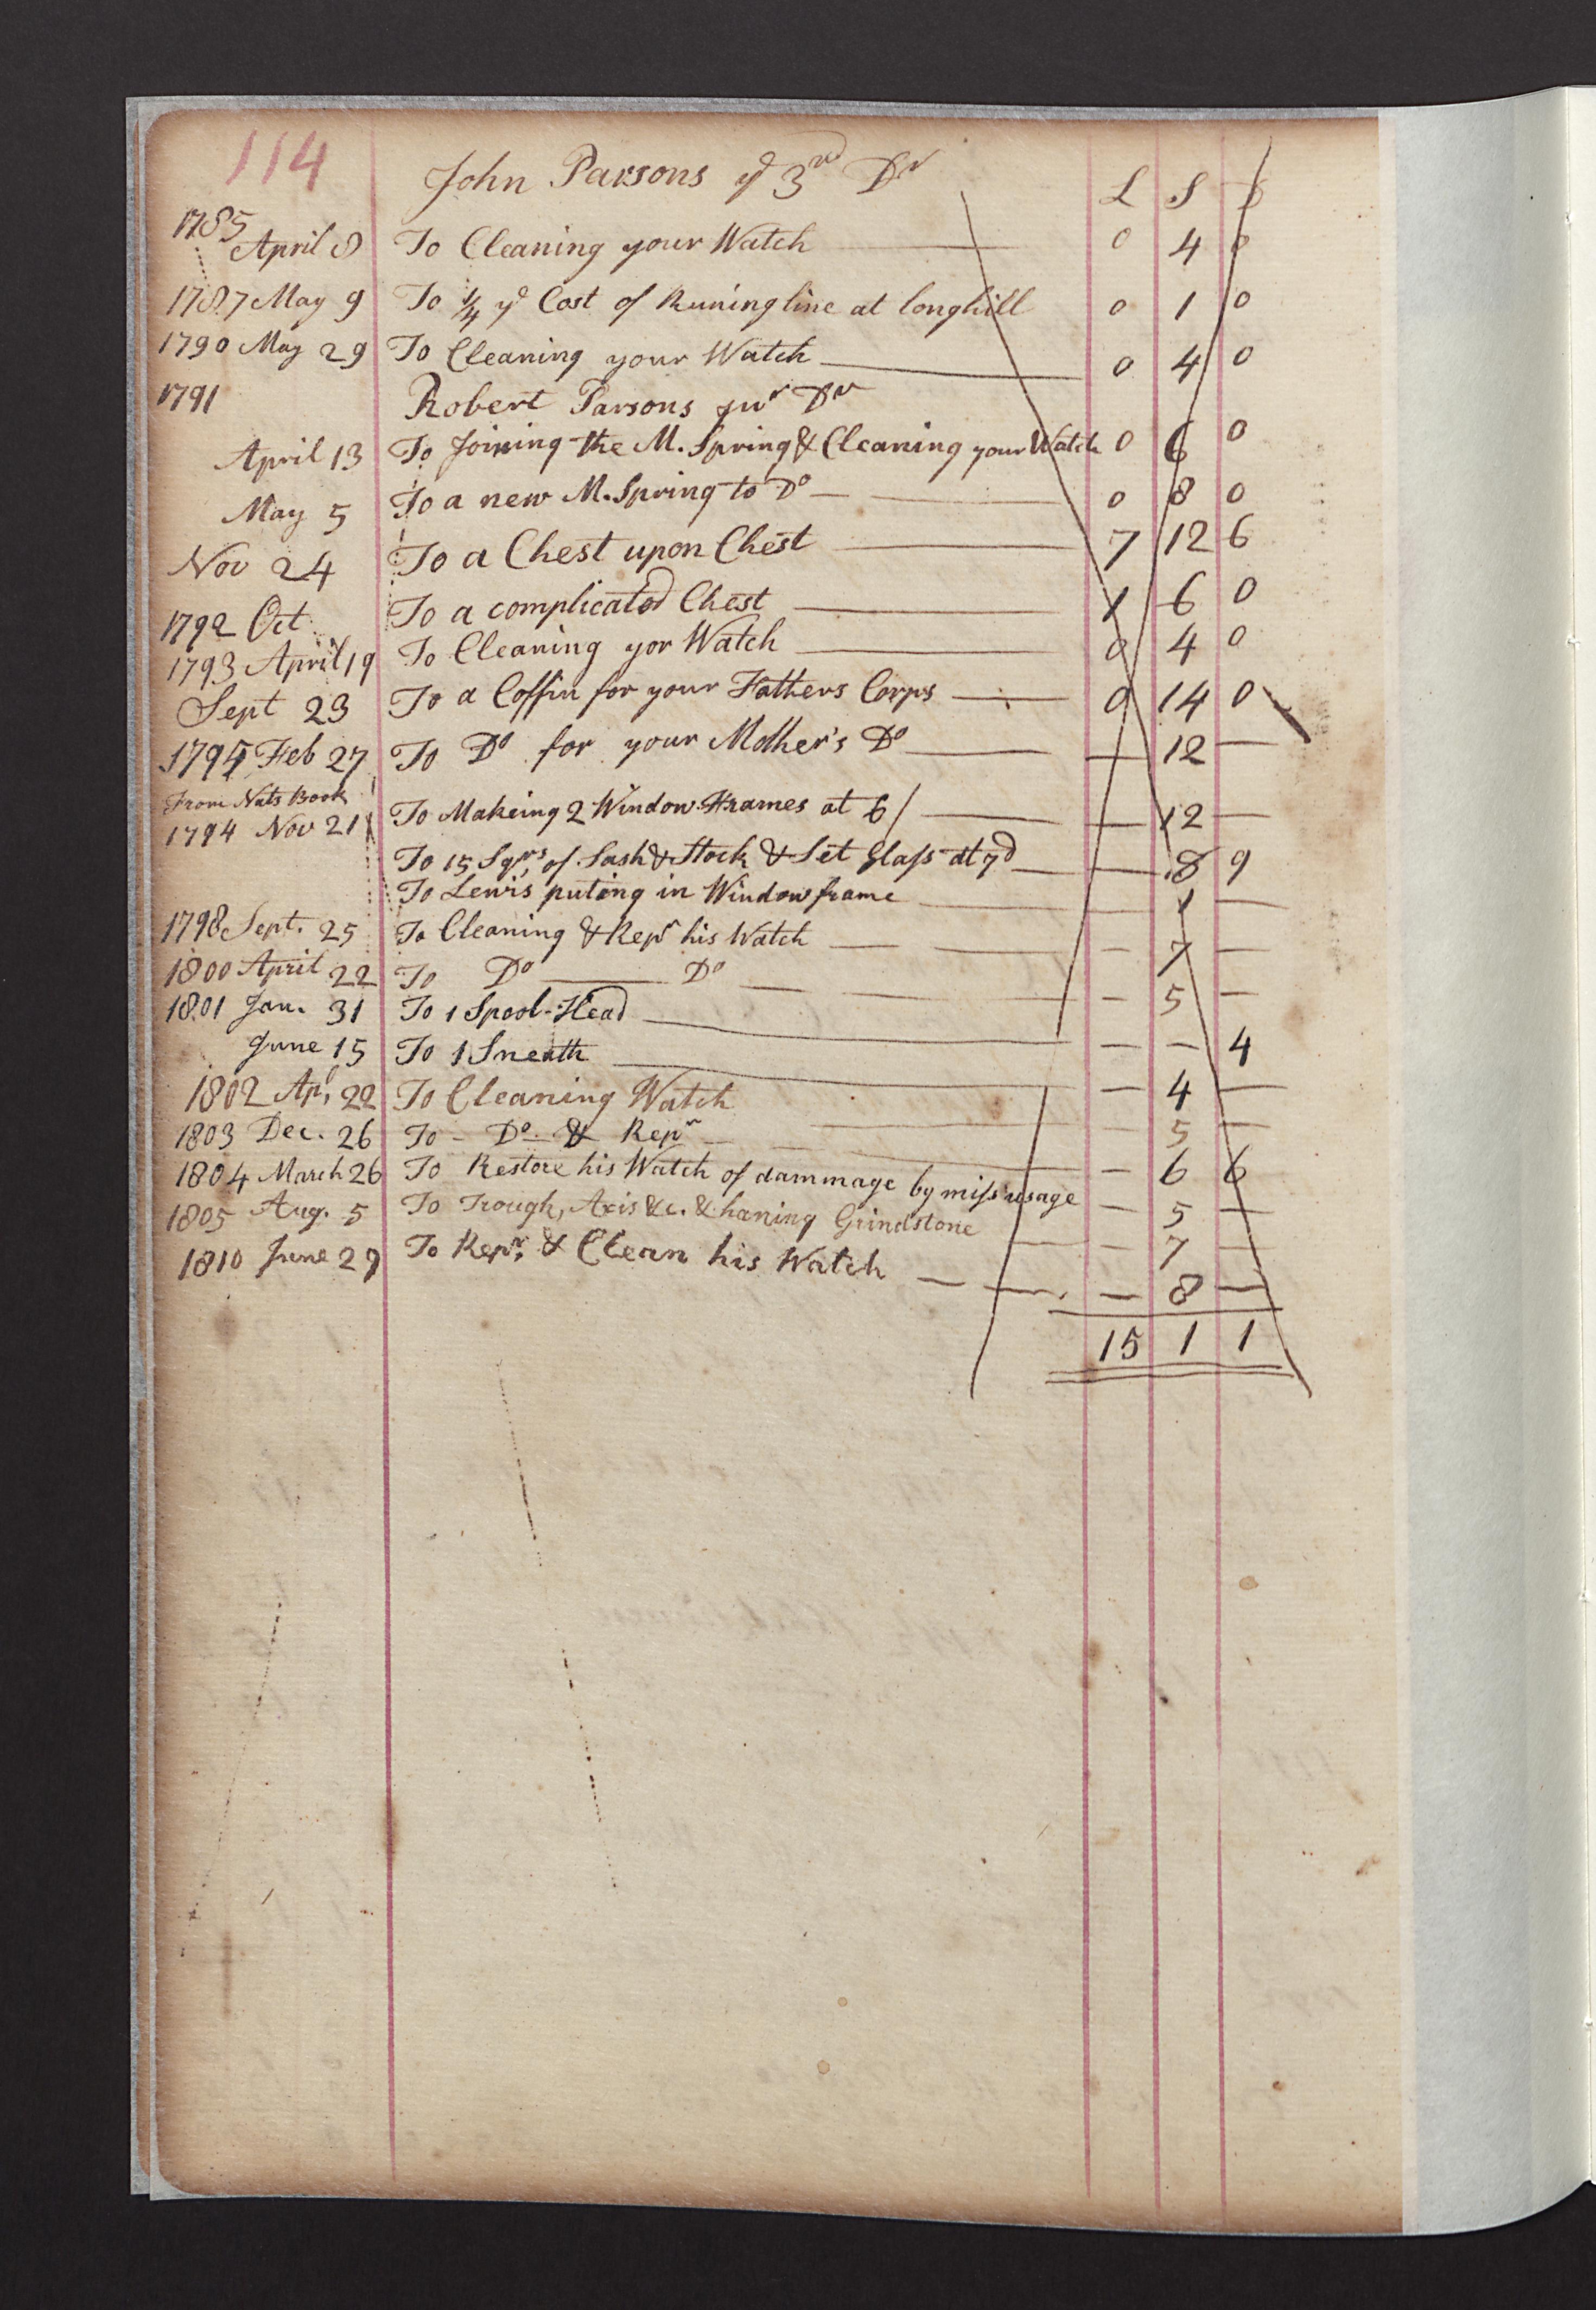 114
John Parsons ye 3rd Dr L S D
1785
April 8 To Cleaning your Watch 0 4 0
1787 May 9 To 1/4 ye Cost of Runing line at longhill 0 1 0
1790 May 29 To Cleaning your Watch 0 4 0
1791 Robert Parsons jur Dr
April 13 To Joining the M. Spring & Cleaning your Watch 0 6 0
May 5 To a new M. Spring to Do 0 8 0
Nov 24 To a Chest upon Chest 7 12 6
1792 Oct To a complicated Chest 1 6 0
1793 April 19 To Cleaning yor Watch 0 4 0
Sept 23 To a Coffin for your Fathers Corps 0 14 0
1795 Feb 27 To Do for your Mother's Do — 12 —
From Nats Book
1794 Nov 21 To Makeing 2 Window Frames at 6/ — 12 —
To 15 Sqrs of Sash & Stock & Set Glass at 7d — 8 9
To Lewis puting in Window frame — 1 —
1798 Sept. 25 To Cleaning & Repr his Watch — 7 —
1800 April 22 To Do Do — 5 —
1801 Jan. 31 To 1 Spool-Head — — 4
June 15 To 1 Sneath — 4 —
1802 Apl, 22 To Cleaning Watch — 5 —
1803 Dec. 26 To – Do. & Repr — 6 6
1804 March 26 To Restore his Watch of dammage by miss usage — 5 —
1805 Aug. 5 To Trough, Axis &c. & haning Grindstone — 7 —
1810 June 29 To Repr, & Clean his Watch — 8 —
15 1 1